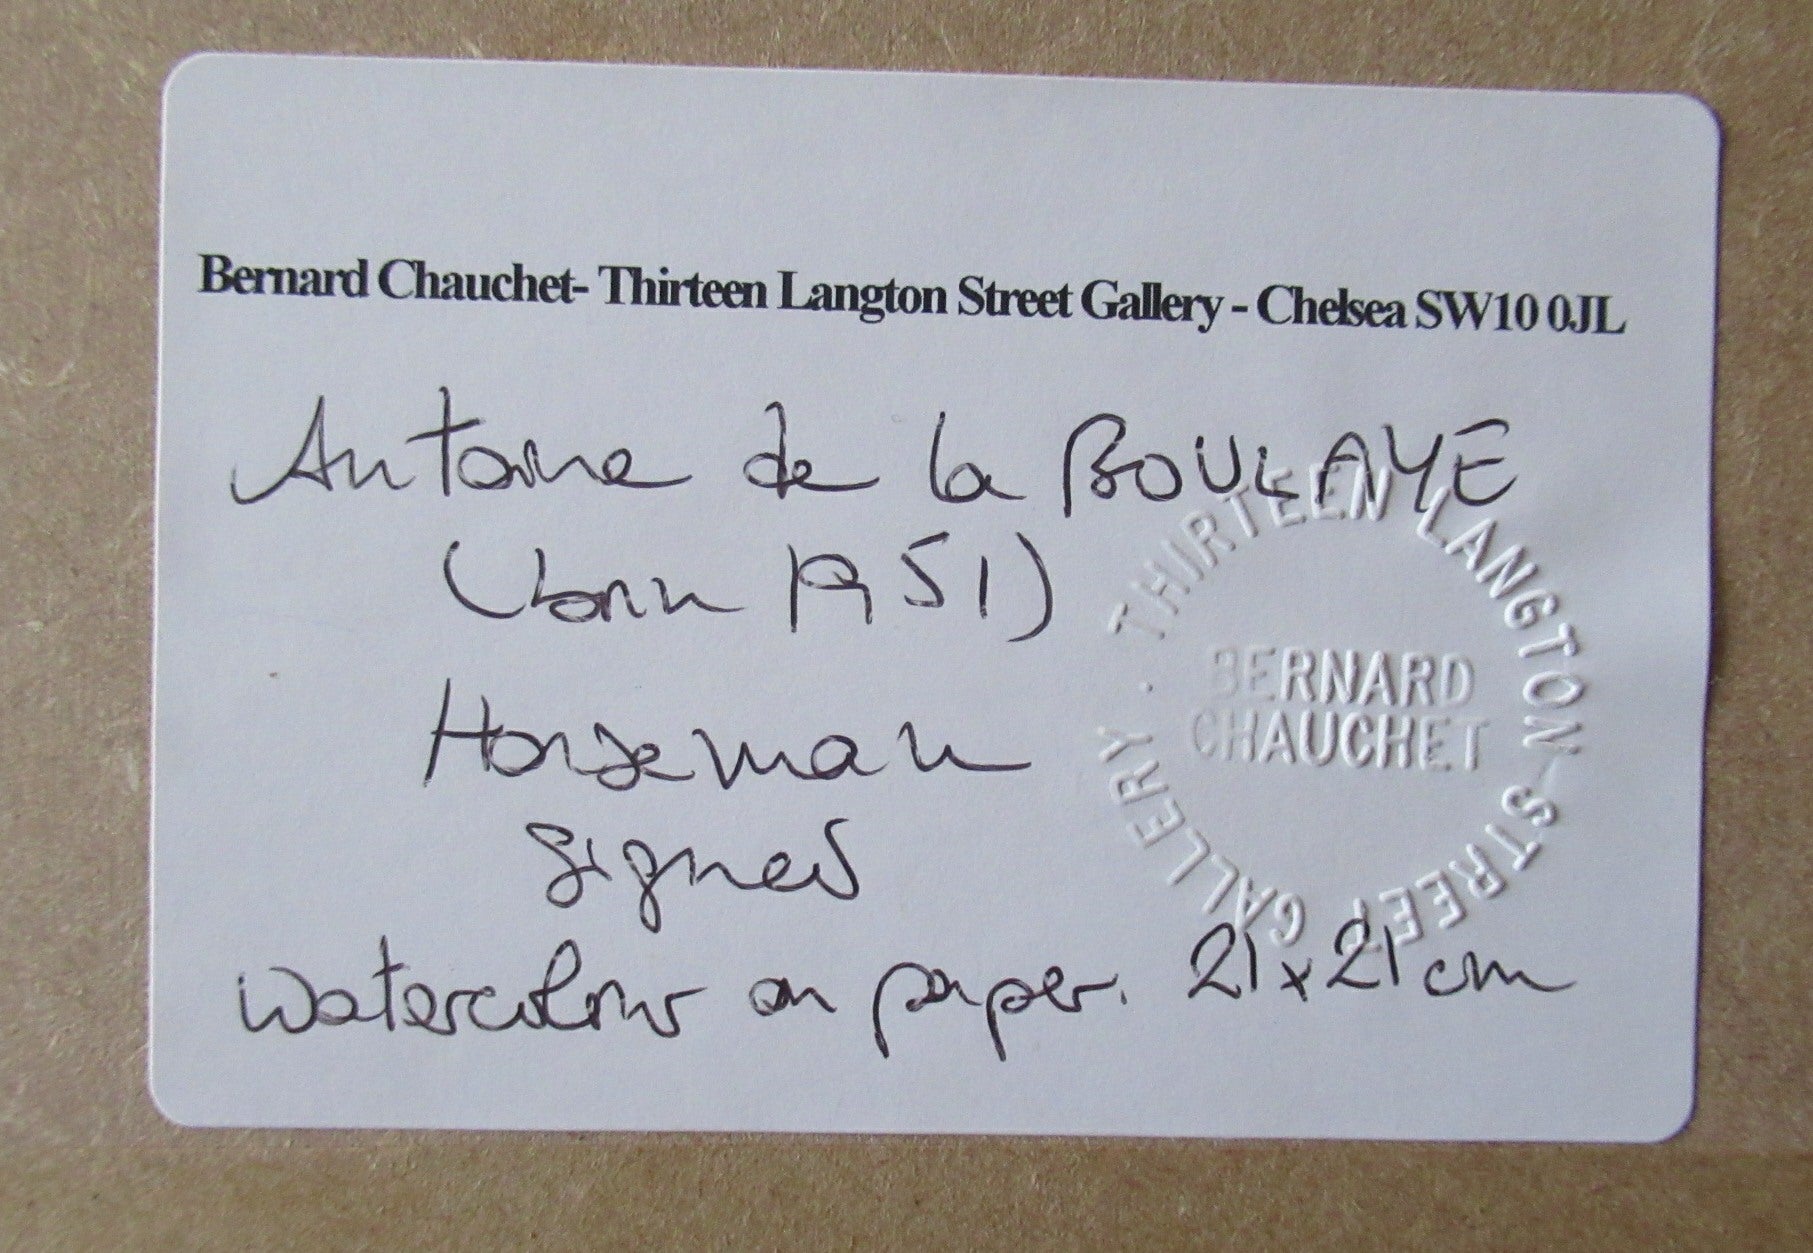 Bernard Chauchet- Thirteen Langton Street Gallery - Chelsea SW10 0JL
Antoine de la BOULAYE
(born 1951)
Horseman
signed
watercolour on paper. 21x21cm
THIRTEEN LANGTON STREET GALLERY .
BERNARD
CHAUCHET